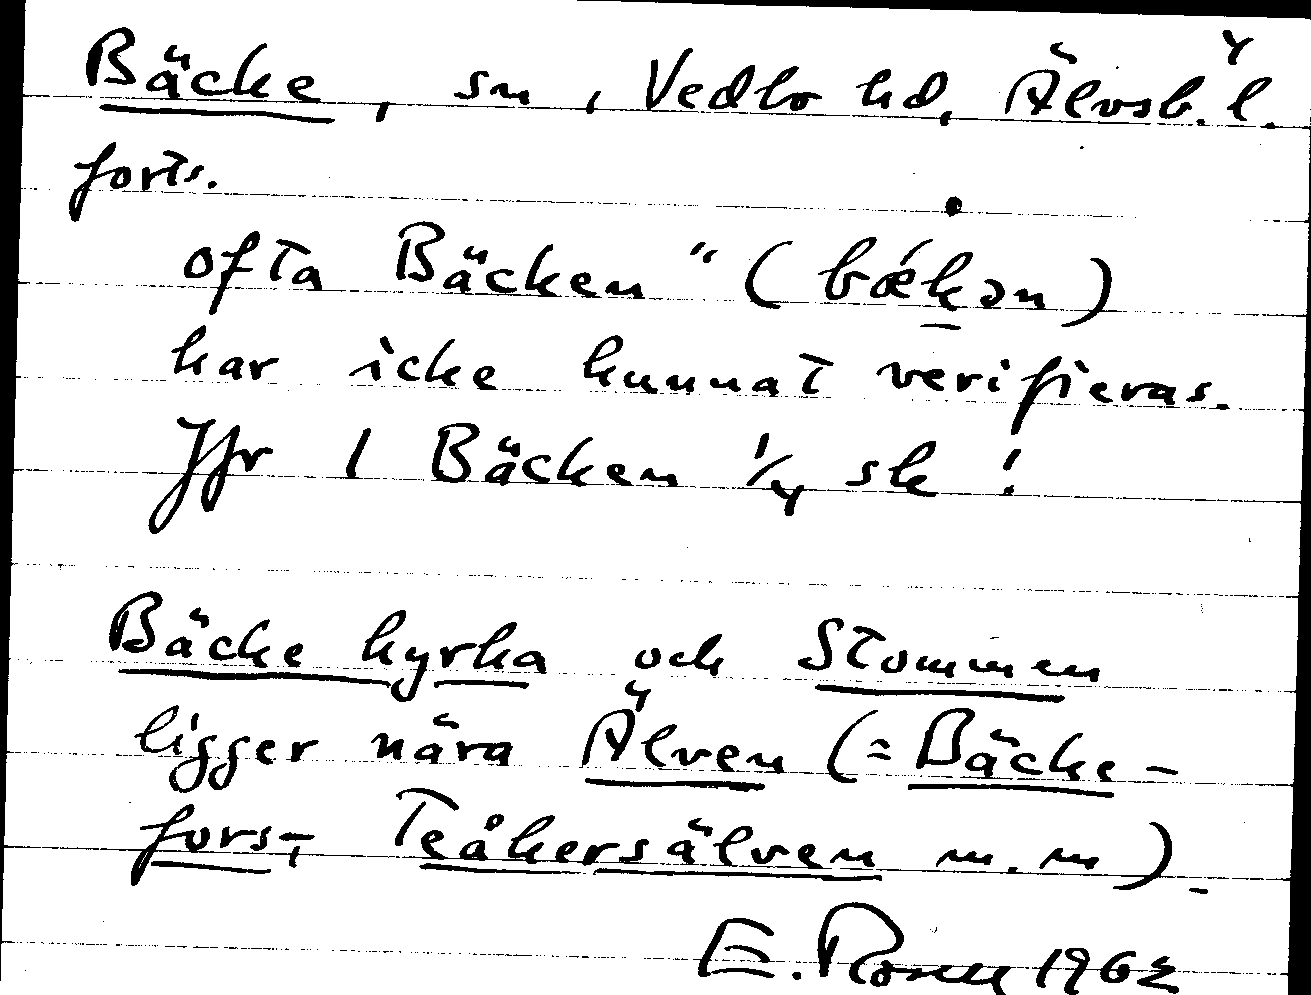 4
Bäcke, sn, Vedbo hd, Älvsb. l.
forts.
ofta Bäcken" (bǽkən)
har icke kunnat verifieras.
Jfr 1 Bäcken 1/4 sk!
Bäcke kyrka och Stommen
ligger nära Älven (= Bäcke-
fors-, Teåkersälven m.m).
E. Rosell 1962